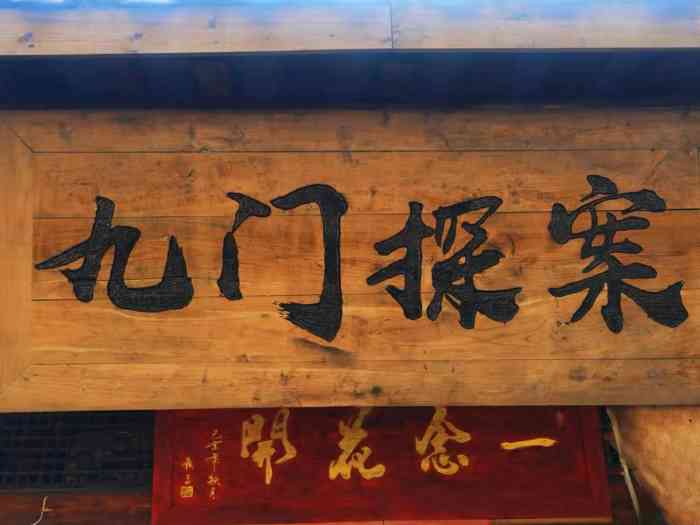 九门探案
一念花開